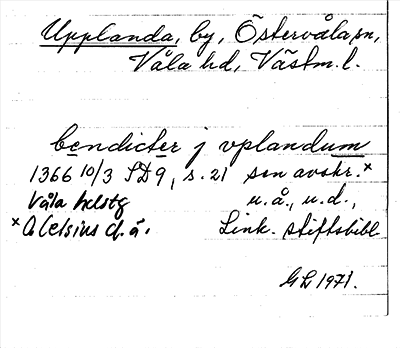 Upplanda, by, Östervåla sn,
Våla hd, Västm. l.
bendicter j vplandum
1366 10/3 SD 9, s. 21 sen avskr.x
Våla hdstg u.å., u.d.,
x O Celsius d. ä. Link. stiftsbibl
GL 1971.